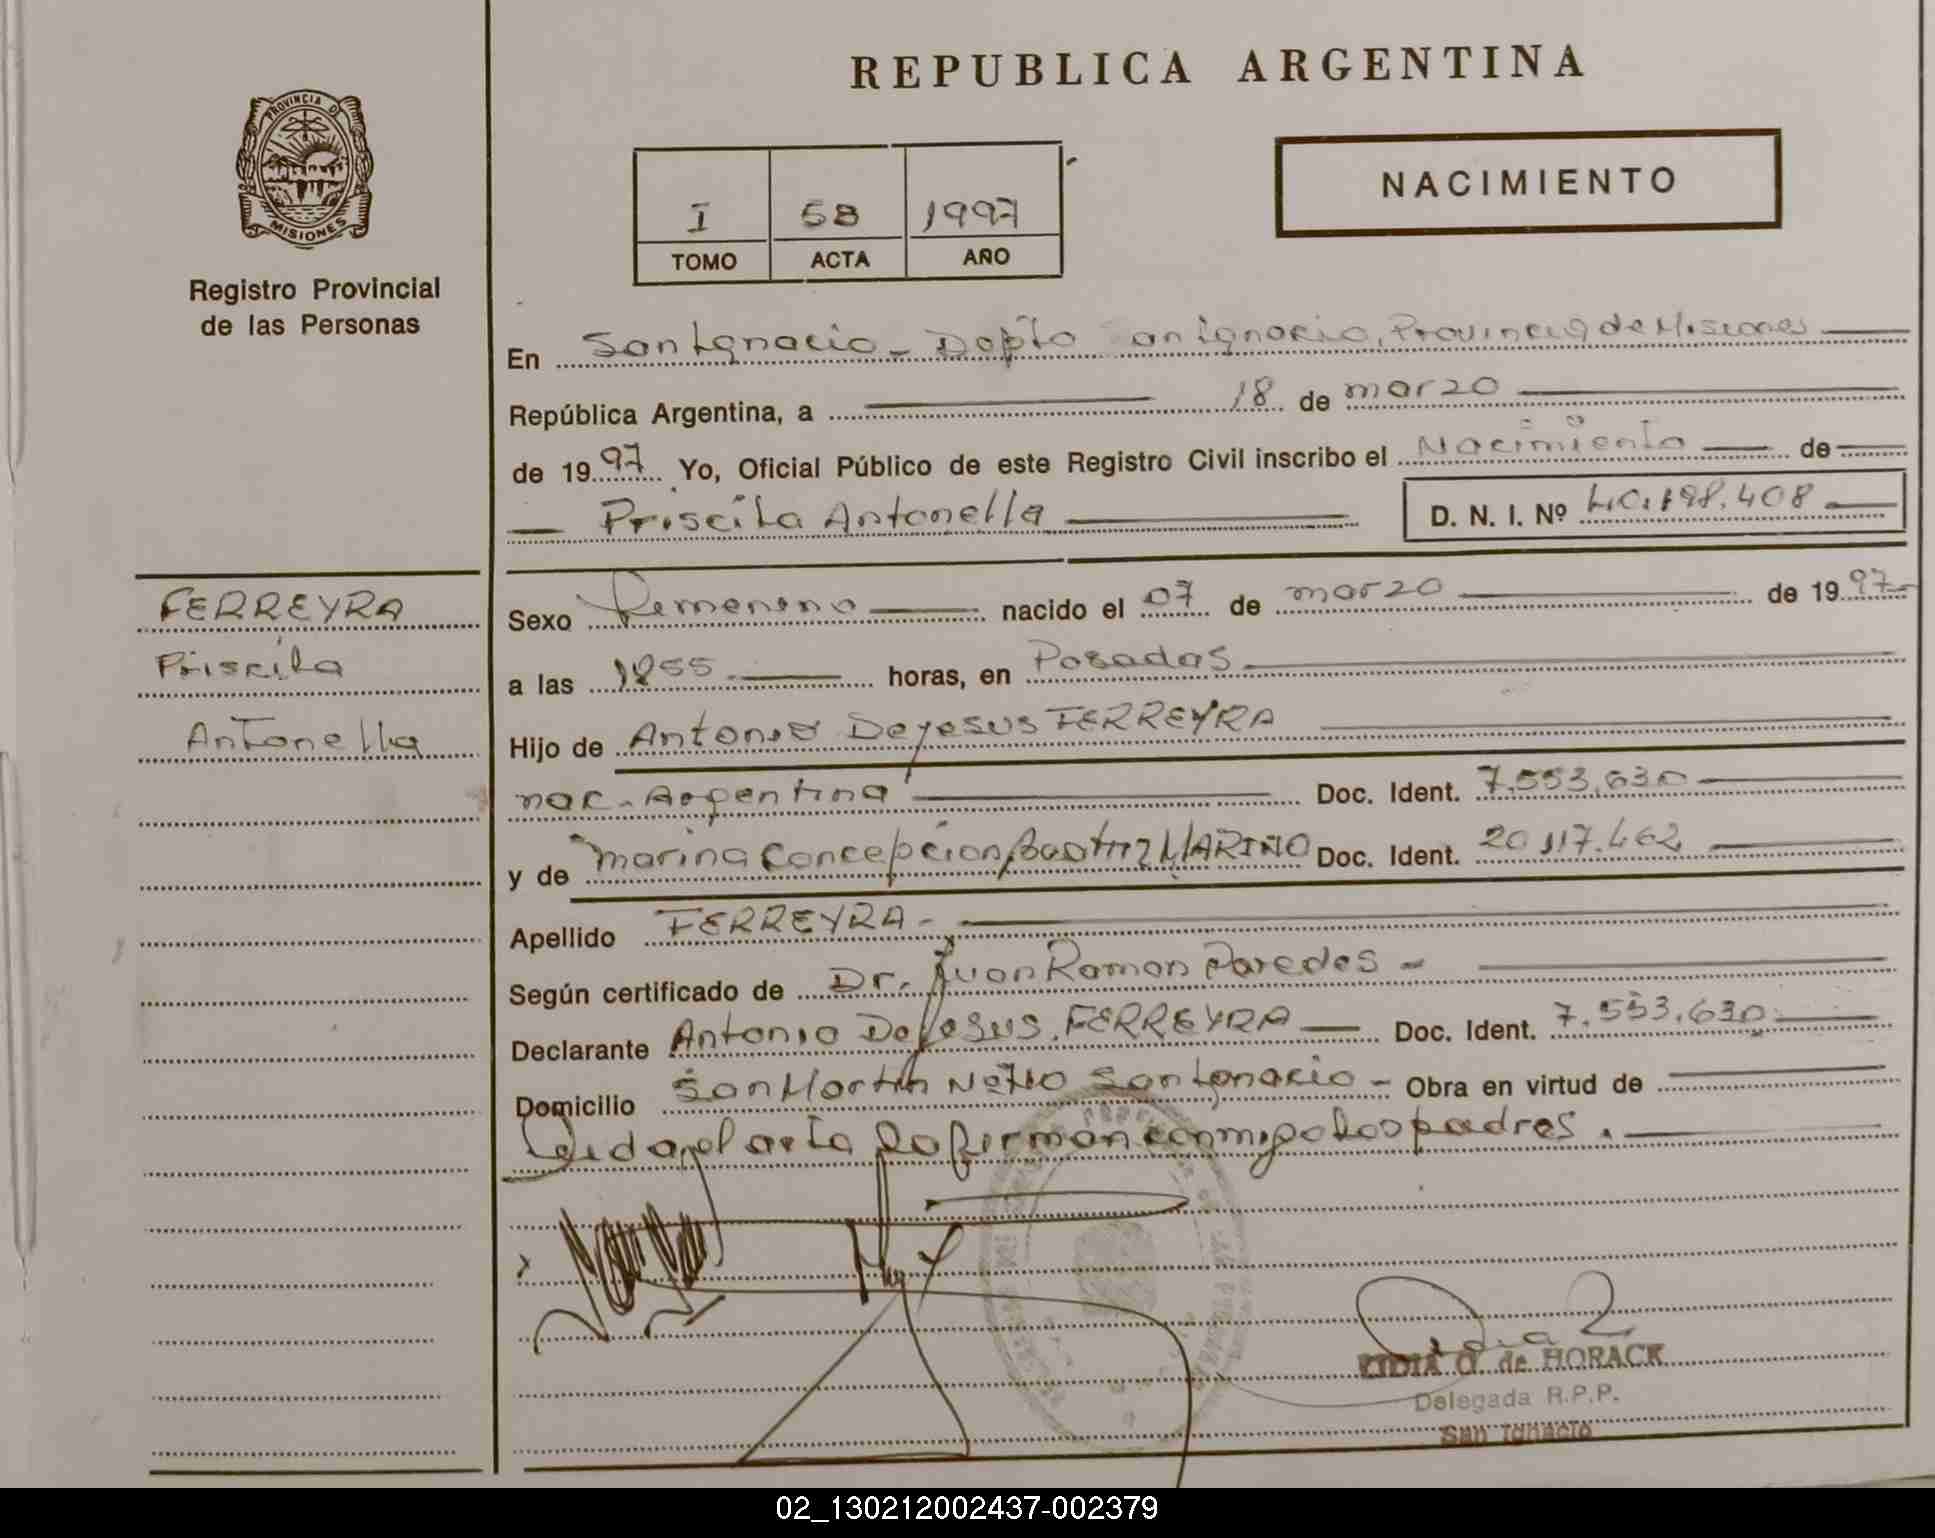 PROVINCIA DE
MISIONES
Registro Provincial
de las Personas
REPUBLICA ARGENTINA
NACIMIENTO
I 58 1997
TOMO ACTA AÑO
En San Ignacio - Dpto San Ignacio, Provincia de Misiones
República Argentina, a 18 de marzo
de 1997 Yo, Oficial Público de este Registro Civil inscribo el Nacimiento de
Priscila Antonella D. N. I. Nº 40.198.408
FERREYRA
Priscila
Antonella
Sexo Femenino nacido el 07 de marzo de 1997
a las 1255 horas, en Posadas
Hijo de Antonio Dejesus FERREYRA
nac. Argentina Doc. Ident. 7.553.630
y de Marina Concepcion Beatriz MARIÑO Doc. Ident. 20.117.462
Apellido FERREYRA -
Según certificado de Dr. Juan Ramon Paredes -
Declarante Antonio Dejesus FERREYRA Doc. Ident. 7.553.630
Domicilio San Martin San Ignacio - Obra en virtud de
Leida el acta la firman conmigo los padres.
LIDIA O. de HORACK
Delegada R.P.P.
San Ignacio
02_130212002437-002379